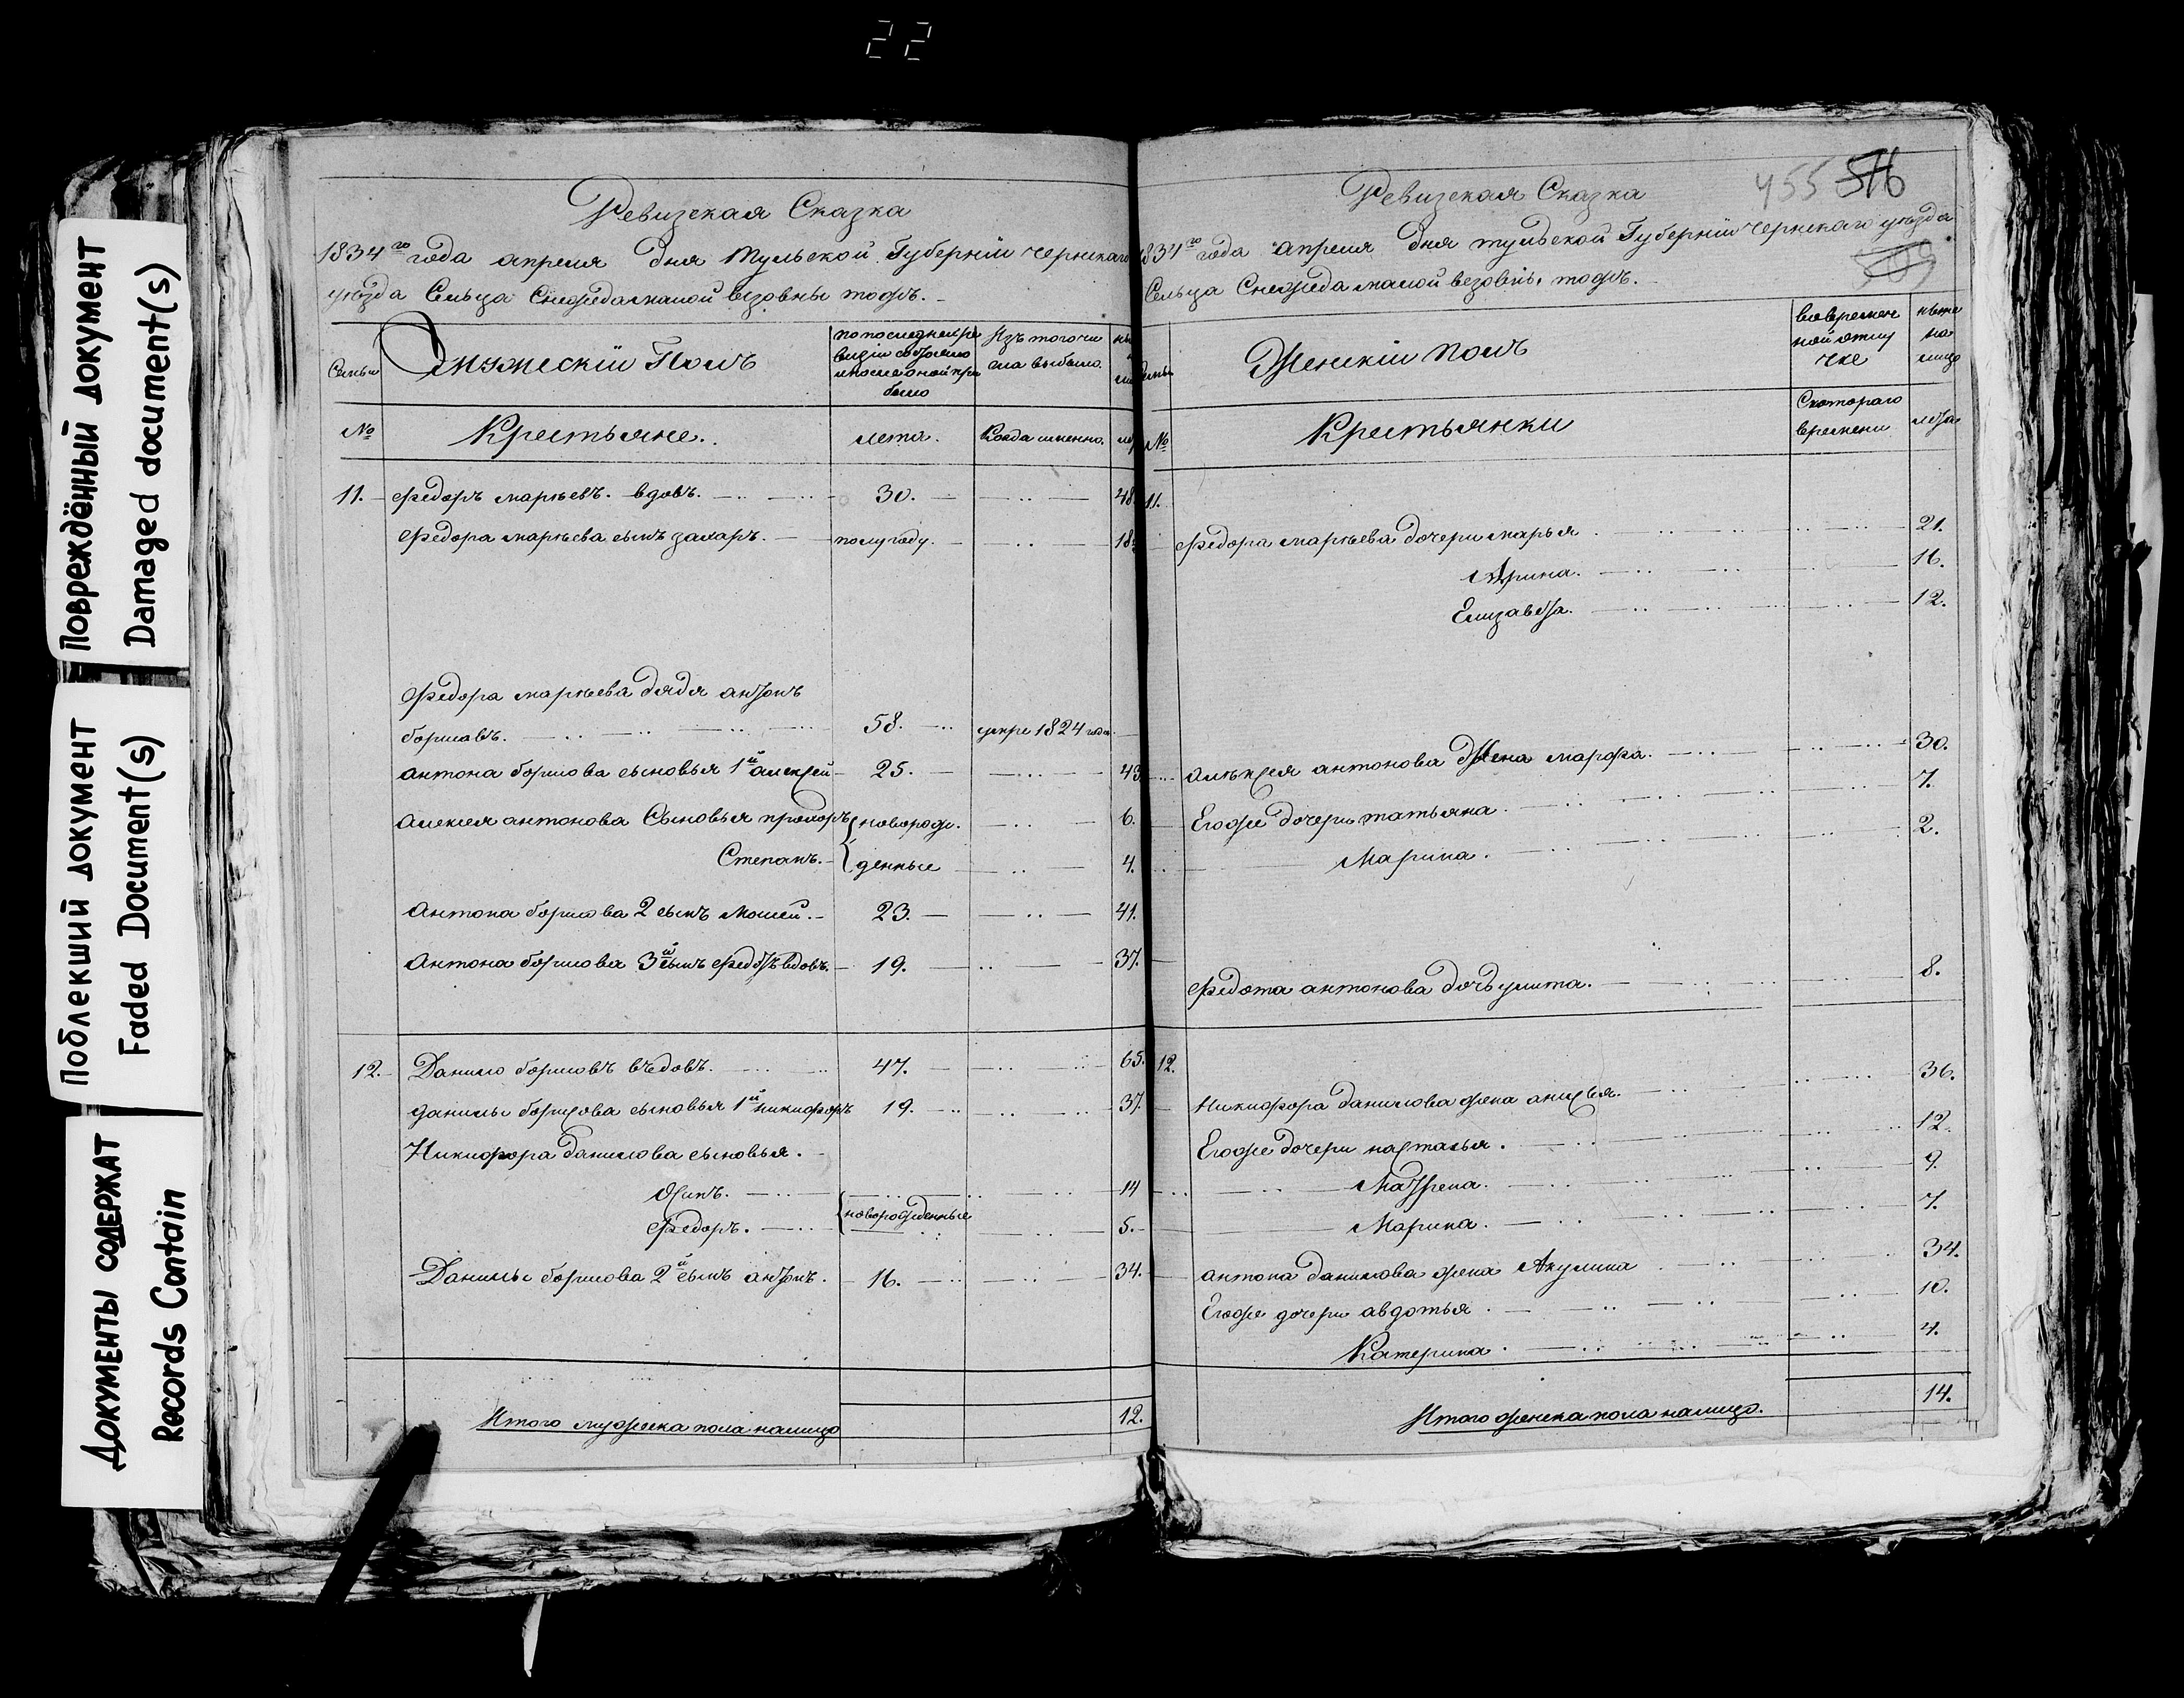 22
Повреждённый документ
Damaged document(s)
Поблекший документ
Faded Document(s)
Документы содержат
Records Contain
Ревизская Сказка
1834го года апреля дня Тульской Губерніи чернскаго
уѣзда Сельца Снежеда тожъ.
Семьи
Мужескій Полъ
по последней ре
визіи состояло
и после оной при
было
Изъ того чи
сла выбыло
№
Крестьяне.
лета.
Когда именно.
11. федоръ маркѣевъ. вдовъ. 30. 48
федора маркѣева сынъ захаръ. полугоду. 18
федора маркѣева дядя антонъ
борисовъ. 58. умре 1824 года
антона борисова сыновья 1й алексей 25. 43
алексея антонова Сыновья прохоръ новорож. 6.
Степанъ. денные 4.
Антона борисова 2 сынъ Мосей. 23. 41.
Антона борисова 3й сынъ федотъ вдовъ. 19. 37.
12. Данило борисовъ въдовъ. 47. 65.
данилы борисова сыновья 1й никифоръ 19. 37.
Никифора данилова сыновья.
Осипъ. 14
федоръ. новорожденные 5.
Данилы борисова 2й сынъ антонъ. 16. 34.
Итого мужеска пола налицо 12.
455 516
Ревизская Сказка
1834го года апреля дня тульской Губерніи чернскаго уѣзда
Сельца Снежеда тожъ.
Семьи
Женскій полъ
во времен
ной отлу
чке
ныне
на
лицо
№
Крестьянки
Скотораго
времени
лета
11.
федора маркѣева дочери марья 21.
Арина. 16.
Елизавета. 12.
алексея антонова Жена марфа. 30.
Егоже дочери татьяна. 7.
Марина. 2.
федота антонова дочь улита. 8.
12.
Никифора данилова жена анисья. 36.
Егоже дочери настасья. 12.
Матрена. 9.
Марина. 7.
антона данилова жена Акулина 34.
Егоже дочери авдотья. 10.
Катерина. 4.
Итого женска пола налицо. 14.